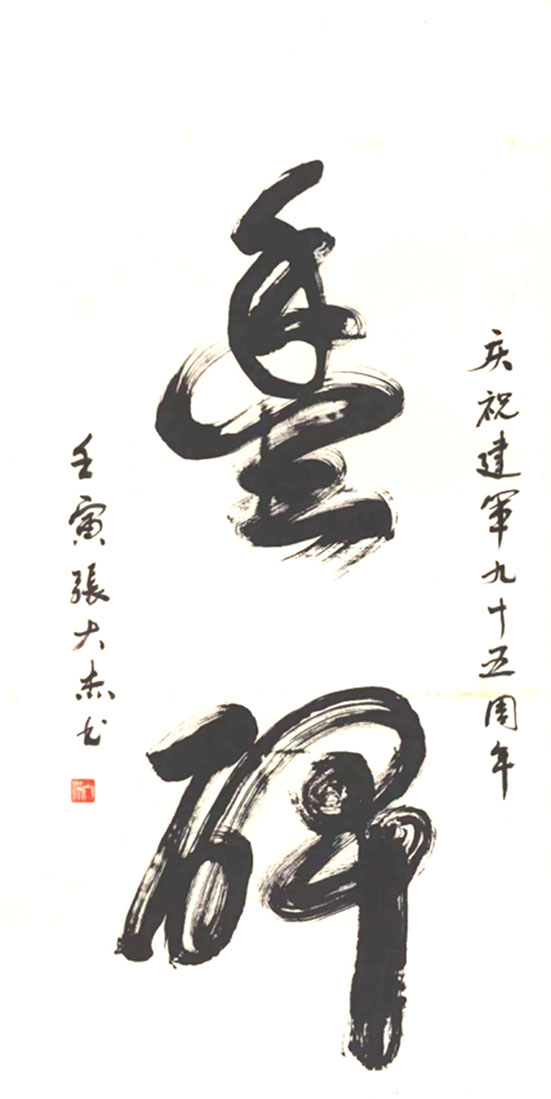 庆祝建军九十五周年
豐碑
壬寅張大杰书